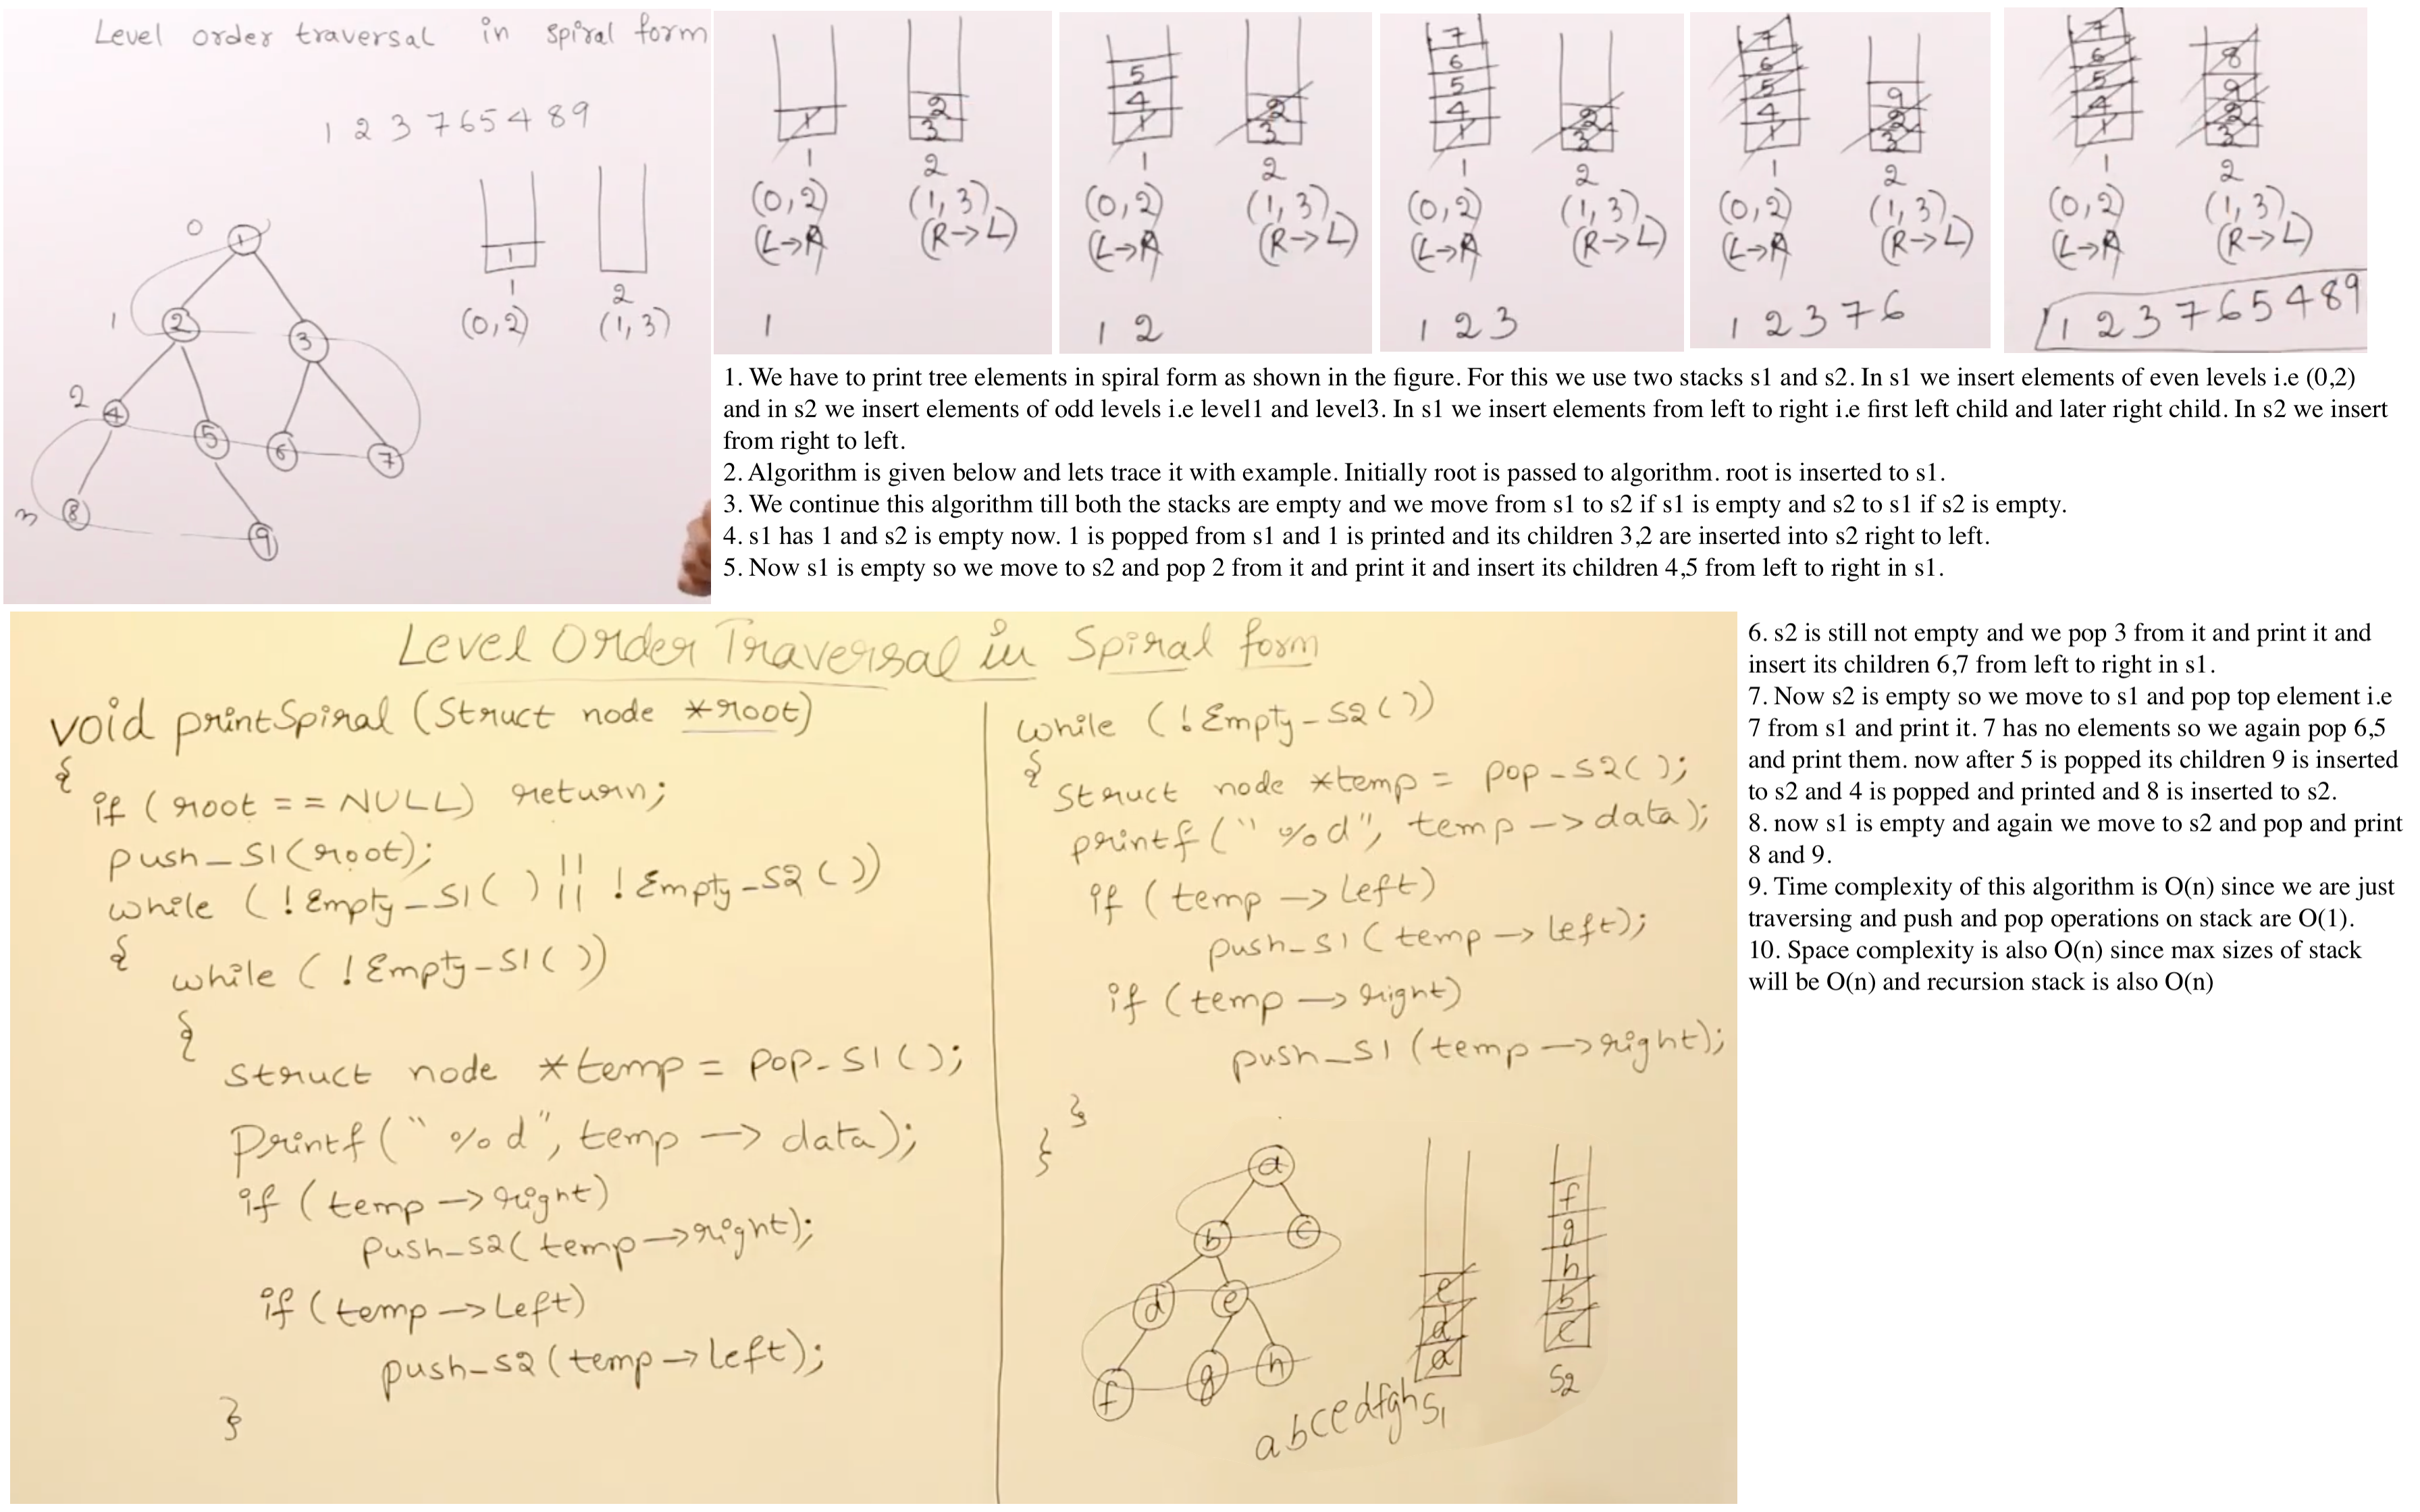 Level order traversal in spiral form
1 2 3 7 6 5 4 8 9
0
1
1
2
3
2
4
5
6
7
3
8
9
1
1
2
(0,2)
(1,3)
1
2
3
1
2
(0,2)
(1,3)
(L→R)
(R→L)
1
5
4
1
2
3
1
2
(0,2)
(1,3)
(L→R)
(R→L)
1 2
7
6
5
4
1
2
3
1
2
(0,2)
(1,3)
(L→R)
(R→L)
1 2 3
7
6
5
4
1
9
2
3
1
2
(0,2)
(1,3)
(L→R)
(R→L)
1 2 3 7 6
7
6
5
4
1
8
9
2
3
1
2
(0,2)
(1,3)
(L→R)
(R→L)
1 2 3 7 6 5 4 8 9
1. We have to print tree elements in spiral form as shown in the figure. For this we use two stacks s1 and s2. In s1 we insert elements of even levels i.e (0,2)
and in s2 we insert elements of odd levels i.e level1 and level3. In s1 we insert elements from left to right i.e first left child and later right child. In s2 we insert
from right to left.
2. Algorithm is given below and lets trace it with example. Initially root is passed to algorithm. root is inserted to s1.
3. We continue this algorithm till both the stacks are empty and we move from s1 to s2 if s1 is empty and s2 to s1 if s2 is empty.
4. s1 has 1 and s2 is empty now. 1 is popped from s1 and 1 is printed and its children 3,2 are inserted into s2 right to left.
5. Now s1 is empty so we move to s2 and pop 2 from it and print it and insert its children 4,5 from left to right in s1.
Level Order Traversal in Spiral form
void printSpiral (Struct node *root)
{
if (root == NULL) return;
push_S1(root);
while (!Empty_S1() || !Empty_S2())
{
while (!Empty_S1())
{
Struct node *temp = pop_S1();
Printf("%d", temp -> data);
if (temp -> right)
Push_S2(temp -> right);
if (temp -> Left)
push_S2(temp -> left);
}
while (!Empty_S2())
{
Struct node *temp = pop_S2();
printf("%d", temp -> data);
if (temp -> left)
push_S1(temp -> left);
if (temp -> right)
push_S1(temp -> right);
}
}
a
b
c
d
e
f
g
h
e
d
a
S1
f
g
h
b
c
S2
abcedfgh
6. s2 is still not empty and we pop 3 from it and print it and
insert its children 6,7 from left to right in s1.
7. Now s2 is empty so we move to s1 and pop top element i.e
7 from s1 and print it. 7 has no elements so we again pop 6,5
and print them. now after 5 is popped its children 9 is inserted
to s2 and 4 is popped and printed and 8 is inserted to s2.
8. now s1 is empty and again we move to s2 and pop and print
8 and 9.
9. Time complexity of this algorithm is O(n) since we are just
traversing and push and pop operations on stack are O(1).
10. Space complexity is also O(n) since max sizes of stack
will be O(n) and recursion stack is also O(n)